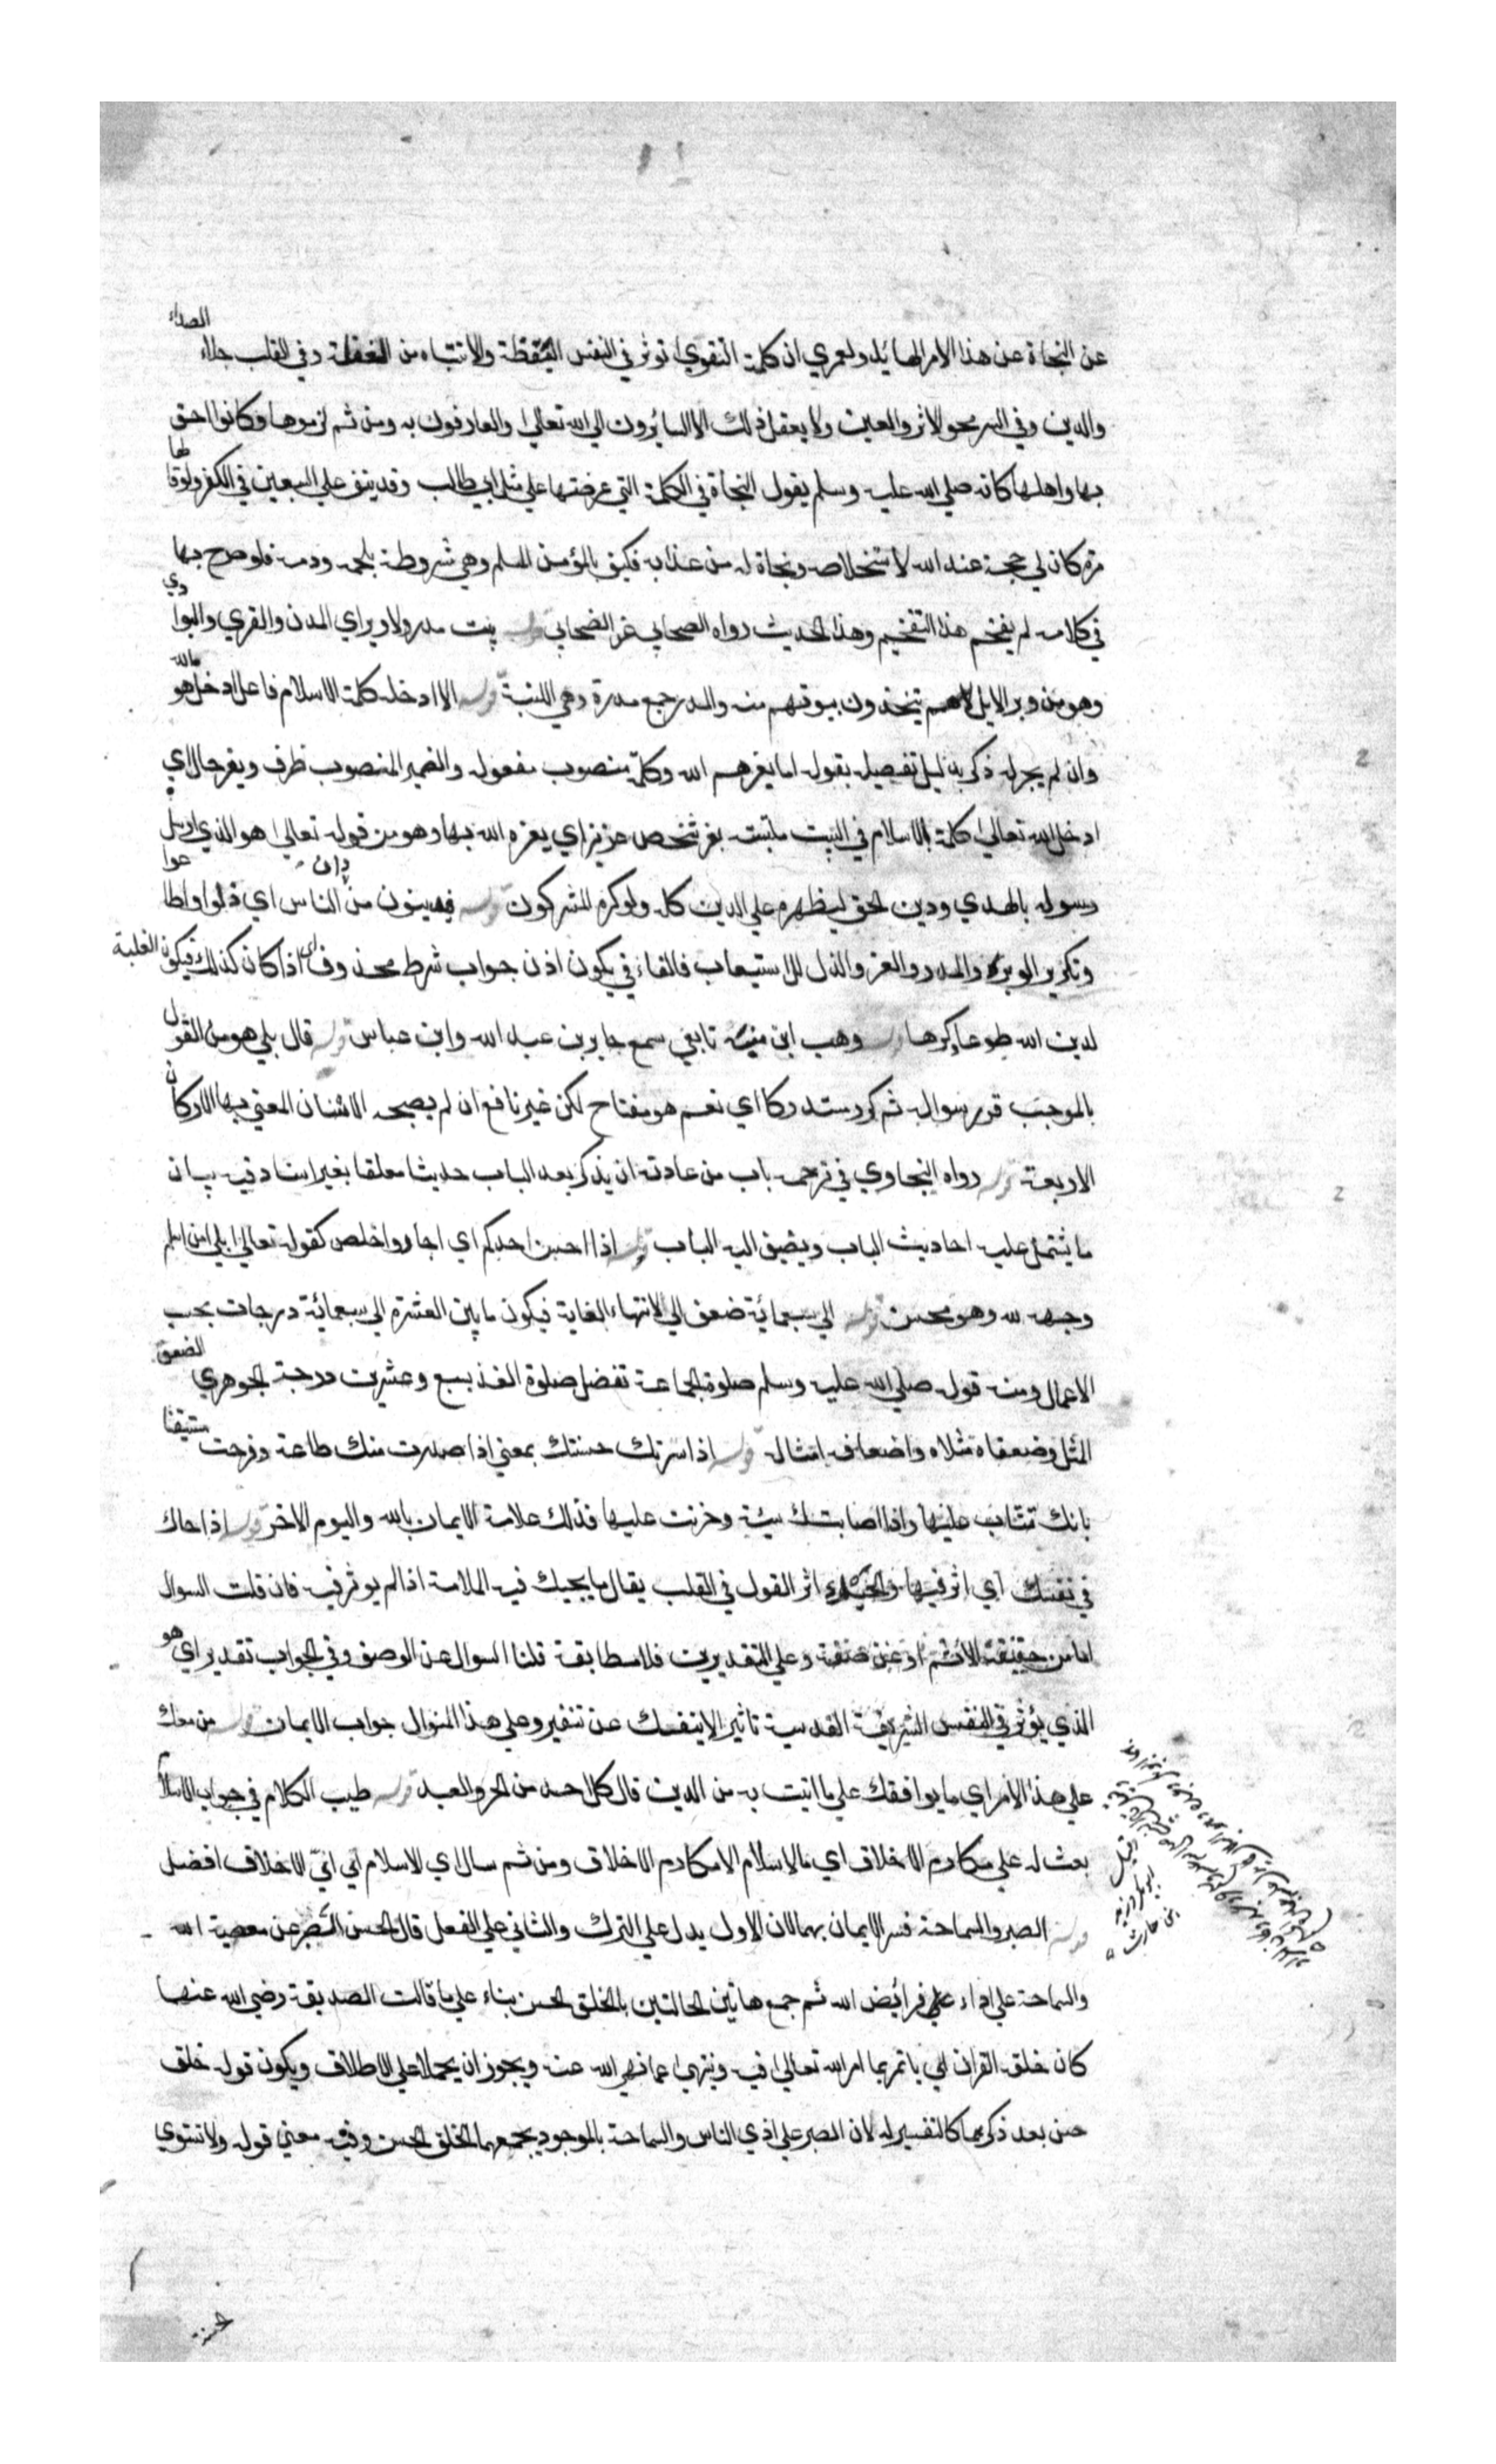 عن النجاة عن هذا الامر الهايل ولعمري ان كلمة التقوي توثر في النفس اليقظة والانتباه من الغفلة وفي القلب جلاء الصداء
والدين وفي السر محو الاثر والعين ولا يعقل ذلك الا السائرون الي الله تعالي والعارفون به ومن ثم لزموها وكانوا احق
بها واهلها كانه صلي الله عليه وسلم يقول النجاة في الكلمة التي عرضتها علي مثل ابي طالب وقد ينف علي السبعين في الكفر ولو قالها
مرة كان لي حجة عند الله لاستخلاصه ونجاة له من عذابه فكيف بالمؤمن المسلم وهي مشروطة بلحمه ودمه فلو صرح بها
في كلامه لم يفخم هذا التفخيم وهذا الحديث رواه الصحابي عن الصحابي قوله بيت مدر ولا وبر اي المدن والقري والبوادي
وهو من وبر الابل لانهم يتخذون بيوتهم منه والمدر جمع مدرة وهي اللبنة قوله الا ادخله كلمة الاسلام فاعل ادخل هو الله
وان لم يجر له ذكر بدليل تفصيله بقوله اما يعزهم الله وكلمة منصوب مفعوله والضمير المنصوب ظرف وبعز حال اي
ادخل الله تعالي كلمة الاسلام في البيت ملتبسة بعز شخص عزيز اي يعزه الله بها وهو من قوله تعالي هو الذي ارسل
رسوله بالهدي ودين الحق ليظهره علي الدين كله ولو كره المشركون قوله فيدينون من دان الناس اي ذلوا واطاعوا
وتكرير الوبر والمدر والعز والذل للاستيعاب فالفاء في يكون اذن جواب شرط محذوف اي اذا كان كذلك فيكون الغلبة
لدين الله طوعا وكرها قوله وهب ابن منبه تابعي سمع جابر بن عبد الله وابن عباس قوله قال بلي هو من القول
بالموجب قرر سواله ثم كر مستدركا اي نعم هو مفتاح لكن غير نافع ان لم يصحبه الاسنان المعني بها الاركان
الاربعة قوله رواه البخاري في ترجمه باب من عادته ان يذكر بعد الباب حديثا معلقا بغير اسناد فيه بيان
ما يشتمل عليه احاديث الباب ويضيف اليه الباب قوله اذا احسن احدكم اي اجاد واخلص كقوله تعالي بلي من اسلم
وجهه لله وهو محسن قوله الي سبعمائة ضعف الي لانتهاء الغاية فيكون ما بين العشرة الي سبعمائة درجات بحسب
الاعمال ومنه قوله صلي الله عليه وسلم صلوة الجماعة تفضل صلوة الفذ بسبع وعشرين درجة الجوهري الضعف
المثل وضعفاه مثلاه واضعافه امثاله قوله اذا سرتك حسنتك بمعني اذا صدرت منك طاعة وفرحت متيقنا
بانك تثاب عليها واذا اصابتك سيئة وحزنت عليها فذلك علامة الايمان بالله واليوم الاخر قوله اذا حاك
في نفسك اي اثر فيها والحيك اثر القول في القلب يقال ما يحيك فيه الملامة اذا لم يوثر فيه فان قلت السوال
اما من حقيقة الاثم او عن صفته وعلي التقديرين فلا مطابقة قلنا السوال عن الوصف وفي الجواب تقدير اي هو
الذي يؤثر في النفس الشريفة القدسية تاثيرا لا ينفك عن تنفير وعلي هذا المنوال جواب الايمان قوله من معك
علي هذا الامر اي ما يوافقك علي ما اتيت به من الدين قال كل احد من الحر والعبد قوله طيب الكلام في جواب الاسلام
بعث له علي مكارم الاخلاق اي مالاسلام الامكارم الاخلاق ومن ثم سال اي الاسلام اي اني الاخلاق افضل
قوله الصبر والسماحة فسر الايمان بهما لان الاول يدل علي الترك والثاني علي الفعل قال الحسن الصبر عن معصية الله
والسماحة علي اداء علي فرائض الله ثم جمع هاتين الحالتين بالخلق الحسن بناء علي ما قالت الصديقة رضي الله عنها
كان خلقه القران اي ياتمر بما امر الله تعالي فيه وينتهي عما نهي الله عنه ويجوز ان يحملا علي الاطلاق ويكون قوله خلق
حسن بعد ذكرهما كالتفسير له لان الصبر علي اذي الناس والسماحة بالموجود يجمعهما الخلق الحسن وفيه معني قوله ولا تستوي
الحسنة